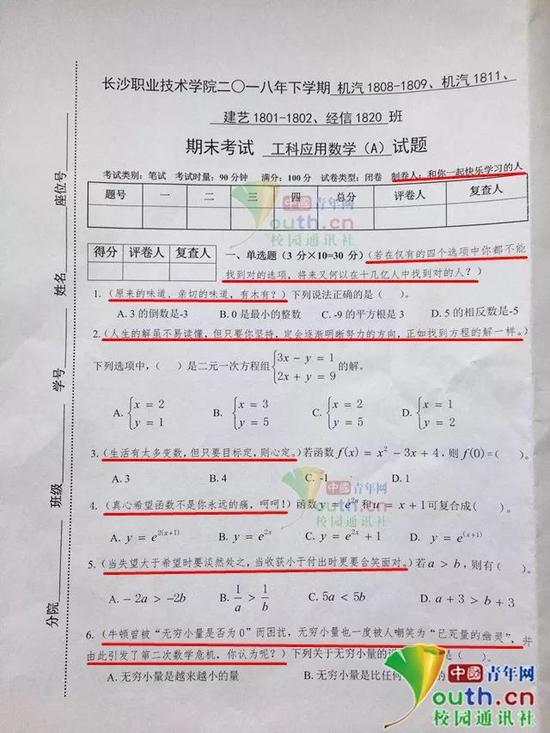 长沙职业技术学院二〇一八年下学期 机汽1808-1809、机汽1811、
建艺1801-1802、经信1820 班
期末考试 工科应用数学（A）试题
考试类别：笔试 考试时量：90分钟 满分：100分 试卷类型：闭卷 制卷人：和你一起快乐学习的人
题号 一 二 三 四 总分 评卷人 复查人
得分
中国青年网
outh.cn
校园通讯社
得分 评卷人 复查人
一、单选题（3分×10=30分）（若在仅有的四个选项中你都不能
找到对的选项，将来又何以在十几亿人中找到对的人？）
1.（原来的味道、亲切的味道，有木有？）下列说法正确的是（ ）。
A. 3的倒数是-3 B. 0是最小的整数 C. -9的平方根是3 D. 5的相反数是-5
2.（人生的解虽不易读懂，但只要你坚持，定会逐渐明晰努力的方向，正如找到方程的解一样。）
下列选项中，（ ）是二元一次方程组{3x − y = 1
2x + y = 9的解。
A.{x = 2
y = 1 B.{x = 3
y = 5 C.{x = 2
y = 5 D.{x = 1
y = 2
3.（生活有太多变数，但只要目标定，则心定。）若函数 f(x) = x² − 3x + 4，则 f(0) =（ ）。
A. 3 B. 4 C. -1 D. 1
中国青年网
outh.cn
校园通讯社
4.（真心希望函数不是你永远的痛，呵呵！）函数 y = e²ᵘ 和 u = x + 1 可复合成（ ）。
A. y = e^{2(x+1)} B. y = e^{2x} C. y = e^{2x} + 1 D. y = e^{(x+1)}
5.（当失望大于希望时要淡然处之，当收获小于付出时更要含笑面对。）若 a > b，则有（ ）。
A. − 2a > −2b B. 1/a > 1/b C. 5a < 5b D. a + 3 > b + 3
6.（牛顿曾被“无穷小量是否为0”而困扰，无穷小量也一度被人嘲笑为“已死量的幽灵”，并
由此引发了第二次数学危机，你认为呢？）下列关于无穷小量的说法
A. 无穷小量是越来越小的量 B. 无穷小量是比任何
中国青年网
outh.cn
校园通讯社
座位号
姓名
学号
班级
分院